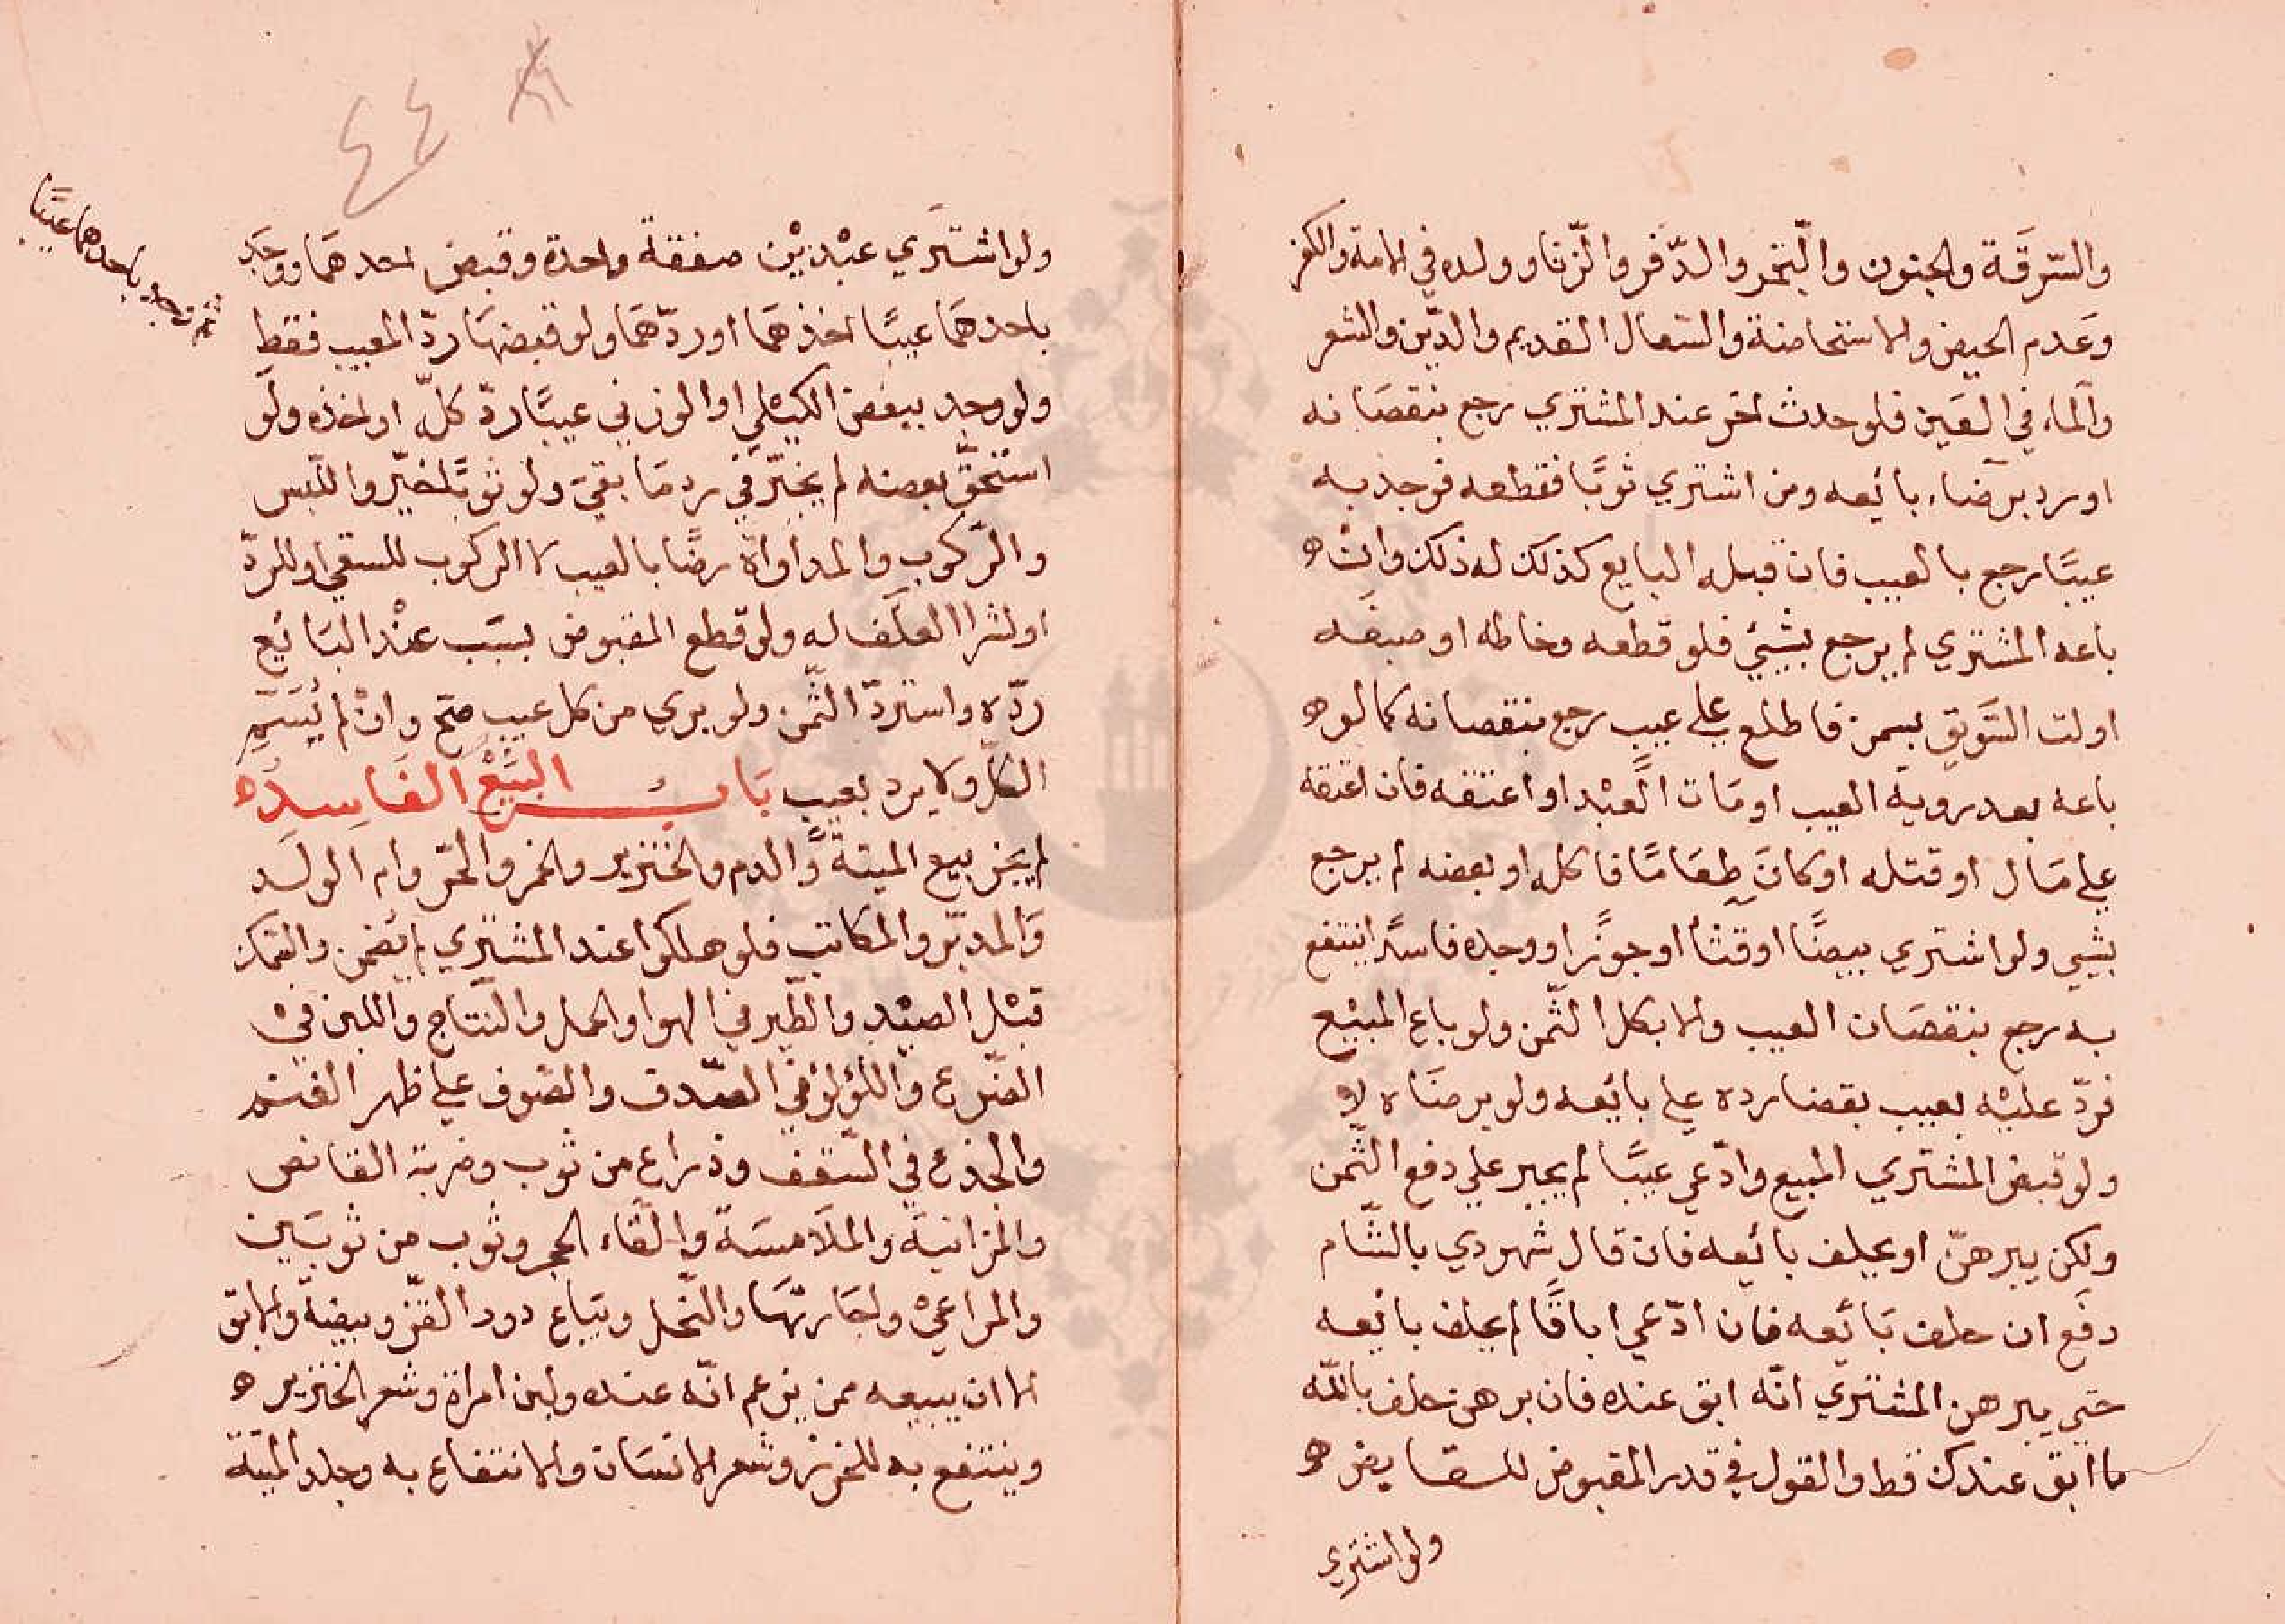 والسّرقَة والجنون والبخر والدّفر والزّنا وولده في الامة والكفر
وعَدم الحيض والاستحاضة والسّعال القديم والدّين والشعر
والمآء في العَين فلو حدث اخر عند المشتري رجع بنقصَانه
اورد برضاء بائعه ومن اشتري ثوبًا فقطعه فوجد به
عيبًا رجع بالعيب فان قبله البايع كذلك له ذلك وان
باعه المشتري لم يرجع بشيئ فلو قطعه وخاطه او صبغه
اولت السّويق بسمن فاطلع علي عيب رجع بنقصانه كما لو
باعه بعد روية العيب او مَات العبْد او اعتقه فان اعتقه
علي مَال او قتله او كانَ طعَامًا فاكله او بعضه لم يرجع
بشيي ولو اشتري بيضًا او قثأ او جوزًا ووجده فاسدًا ينتفع
به رجع بنقصَان العيب والا بكل الثّمن ولو باع المبيْع
فردّ عليْه بعيب بقضا رده علي بائعه ولو برضَاه لا
ولو قبض المشتري المبيع وادّعي عيبًا لم يجبر علي دفع الثّمن
ولكن يبرهنّ او يحلف بائعه فان قال شهودي بالشّام
دفَع ان حلف بَائعه فان ادّعي اباقًا لم يحلف بائعه
حتي يبرهن المشتري انّه ابق عنده فان برهن حلف باللّه
ما ابق عندك قط والقول في قدر المقبوض للقابض
ولو اشتري
٤٤
ولو اشتَري عبْديْن صفقة واحدة وقبض احدهمَا ووجَد
ثم وجد باحدهما عيبًا
باحدهمَا عيبًا اخذهمَا اوردّهمَا ولو قبضهمَا ردّ المعيب فقط
ولو وجد ببعْض الكيْلي او الوزني عيبًا ردّ كلّه او اخذه ولَو
استحقّ بعضه لم يخيّر في رد مَا بقيَ ولو ثوبًا خيّر واللّبس
والرّكوب والمداوَاة رضًا بالعيب لا الركوب للسقي او للردّ
او لشرا العلَف له ولو قطع المقبوض بسبَب عنْد البَائع
ردّه واستردّ الثّمن ولو بري من كل عيب صحّ وانْ لم يُسَمِّ
الكلّ ولا يرد بعيب بَابُ البَيْعْ الفَاسِدَ
لم يَجز بيع الميتة والدم والخنزير والخمر والحّر وام الولَد
وَالمدبّر والمكاتب فلو هلكوا عند المشتري لم يَضمن والسّمك
قبْل الصيْد والطّير في الهوا والحمل والنّتاج واللبن فيْ
الضّرع واللؤلؤ في الصّدف والصّوف علي ظهر الغنَم
والجذع في السّقف وذراع من ثوب وضربة القانص
والمزابنيَة والملَامسَة وإلقَاء الحجر وثوب من ثوبَين
والمراعيْ واجَارتهَا والنّحل ويَباع دود القزّ وبيضهَ والابق
الا ان يبيعه ممن يزعم انّه عنده ولبن امراة وشعر الخنزير
وينتفع به للخرز وشعر الانسَان والانتفاع به وجلد الميتَة